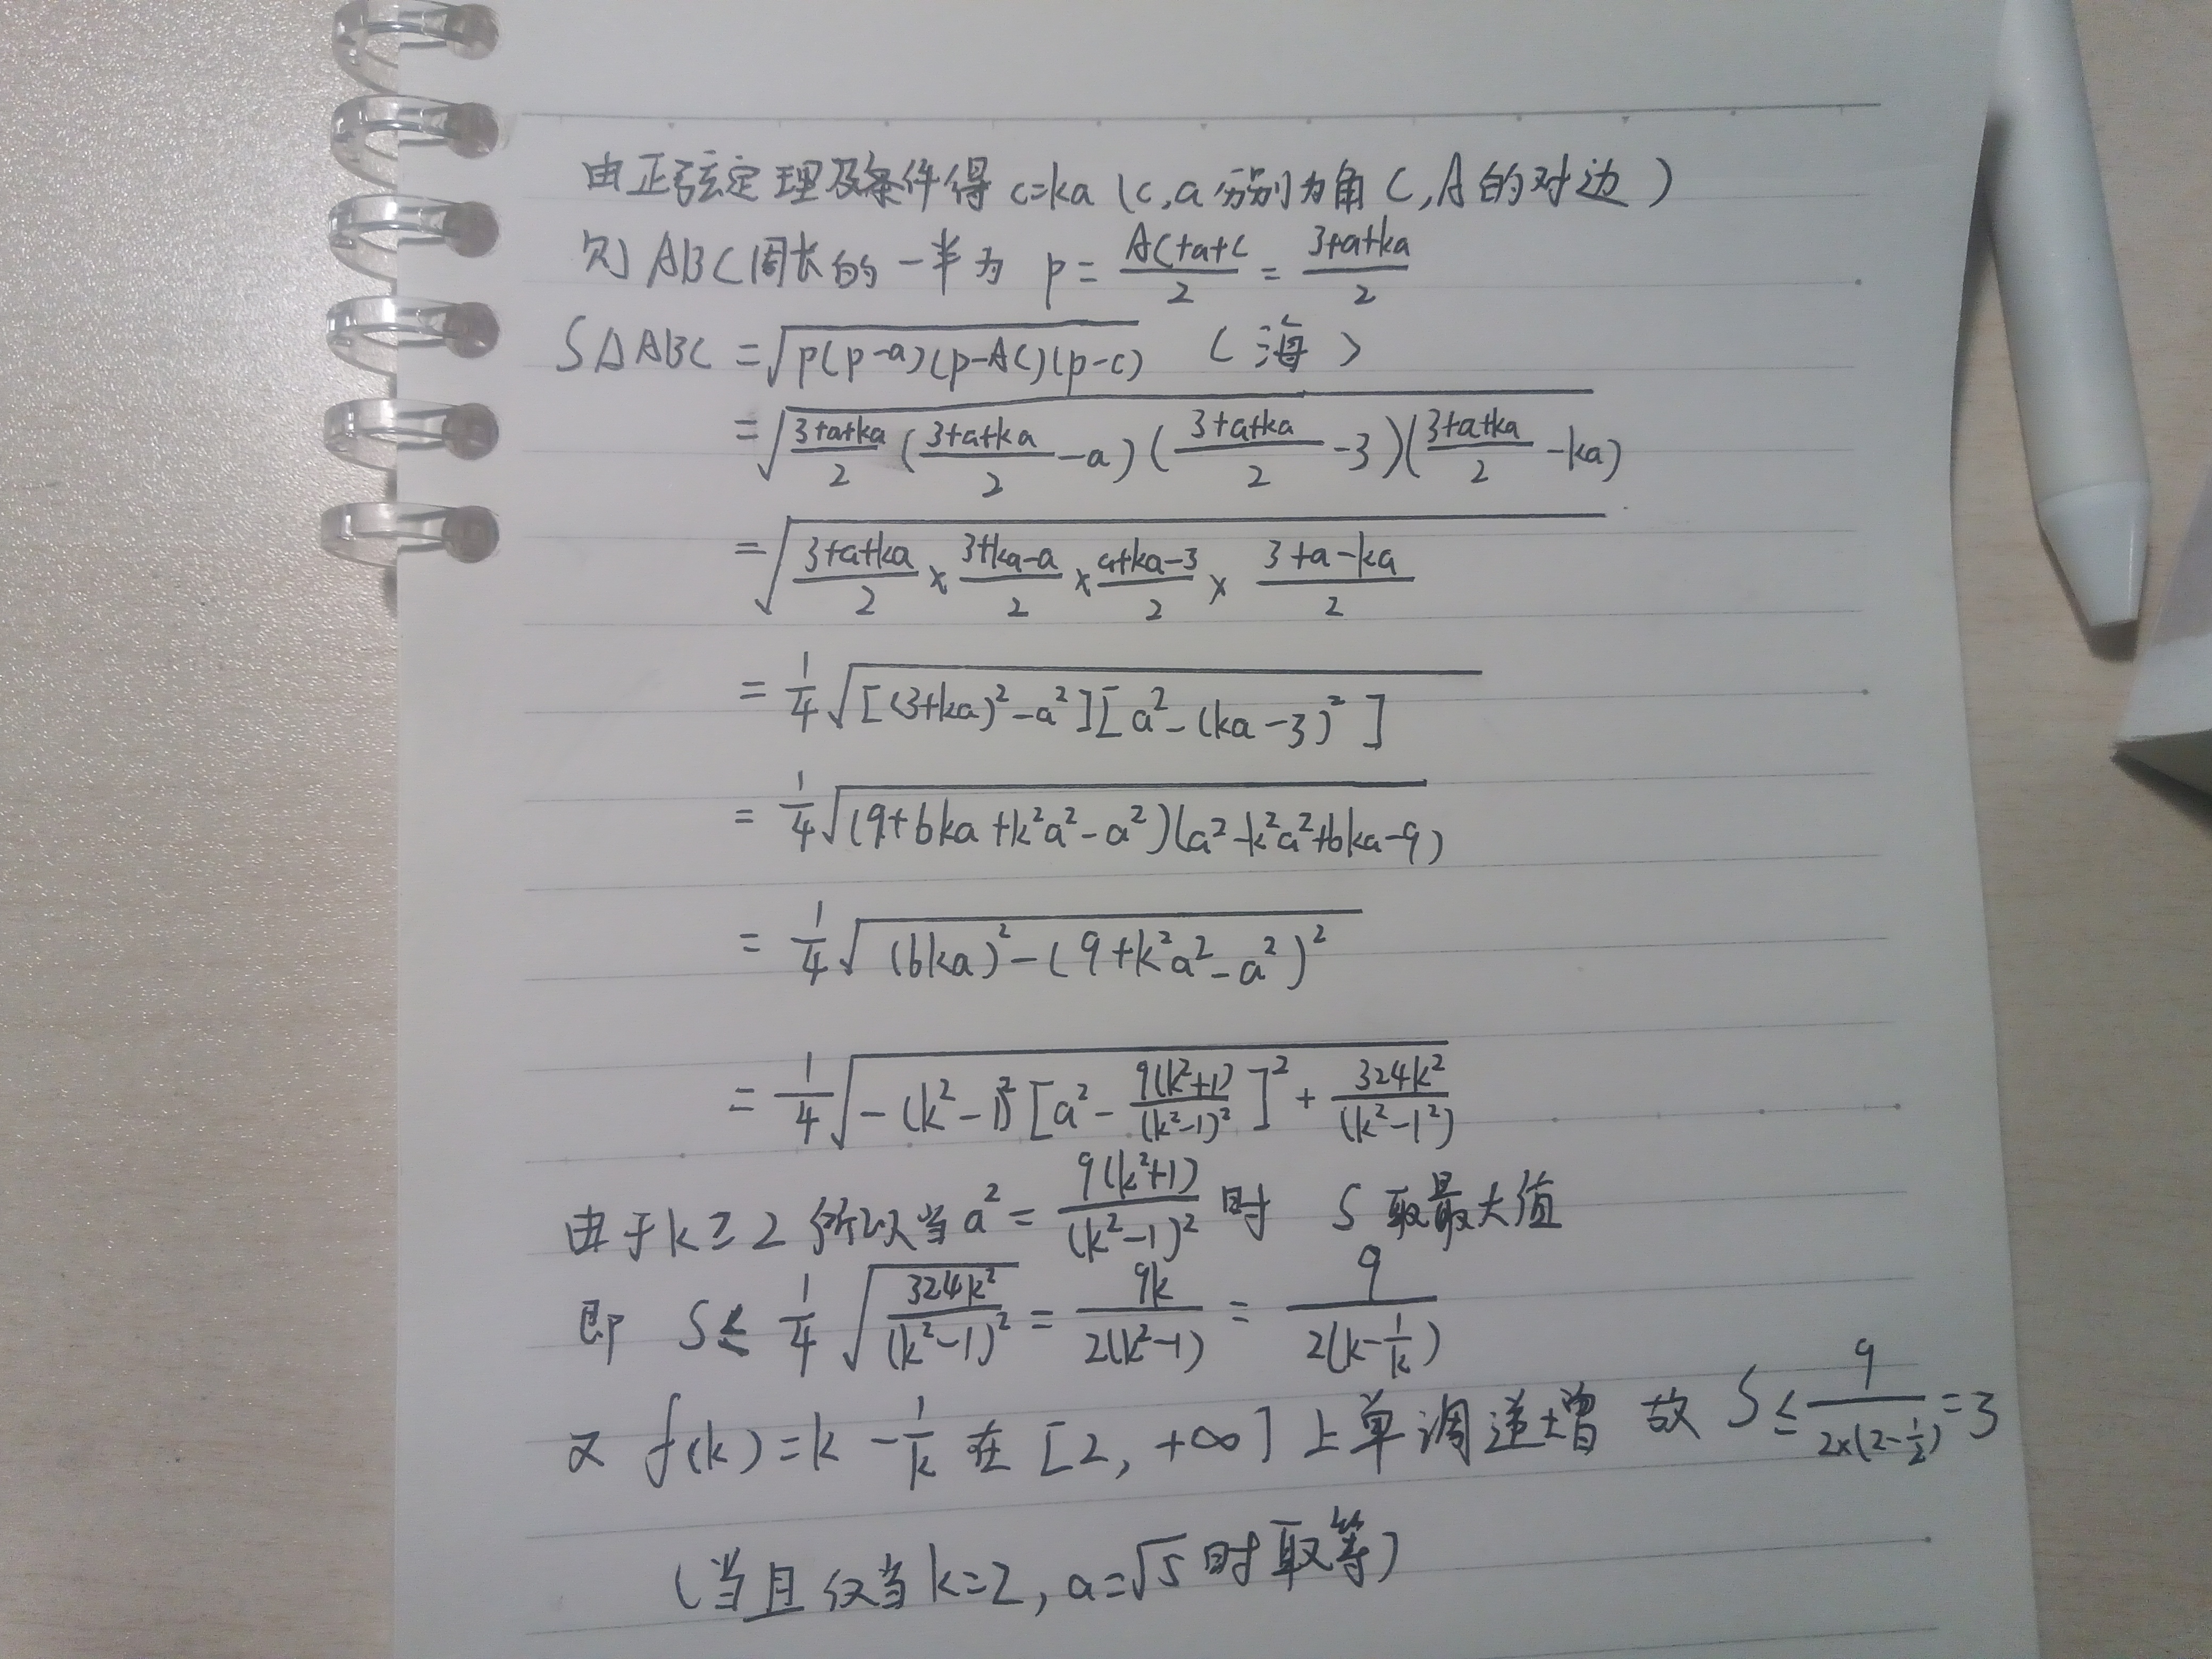 由正弦定理及条件得 c=ka (c,a分别为角C,A的对边)
则 ABC周长的一半为 p = \frac{AC+a+c}{2} = \frac{3+a+ka}{2}
S△ABC = \sqrt{p(p-a)(p-AC)(p-c)} (海)
= \sqrt{\frac{3+a+ka}{2}(\frac{3+a+ka}{2}-a)(\frac{3+a+ka}{2}-3)(\frac{3+a+ka}{2}-ka)}
= \sqrt{\frac{3+a+ka}{2}×\frac{3+ka-a}{2}×\frac{a+ka-3}{2}×\frac{3+a-ka}{2}}
= \frac{1}{4}\sqrt{[(3+ka)^2-a^2][a^2-(ka-3)^2]}
= \frac{1}{4}\sqrt{(9+6ka+k^2a^2-a^2)(a^2-k^2a^2+6ka-9)}
= \frac{1}{4}\sqrt{(6ka)^2-(9+k^2a^2-a^2)^2}
= \frac{1}{4}\sqrt{-(k^2-1)^2[a^2-\frac{9(k^2+1)}{(k^2-1)^2}]^2+\frac{324k^2}{(k^2-1^2)}}
由于k≥2 所以当a^2=\frac{9(k^2+1)}{(k^2-1)^2}时 S取最大值
即 S≤\frac{1}{4}\sqrt{\frac{324k^2}{(k^2-1)^2}}=\frac{9k}{2(k^2-1)}=\frac{9}{2(k-\frac{1}{k})}
又 f(k)=k-\frac{1}{k} 在[2,+∞]上单调递增 故 S≤\frac{9}{2×(2-\frac{1}{2})}=3
(当且仅当k=2,a=\sqrt{5}时取等)